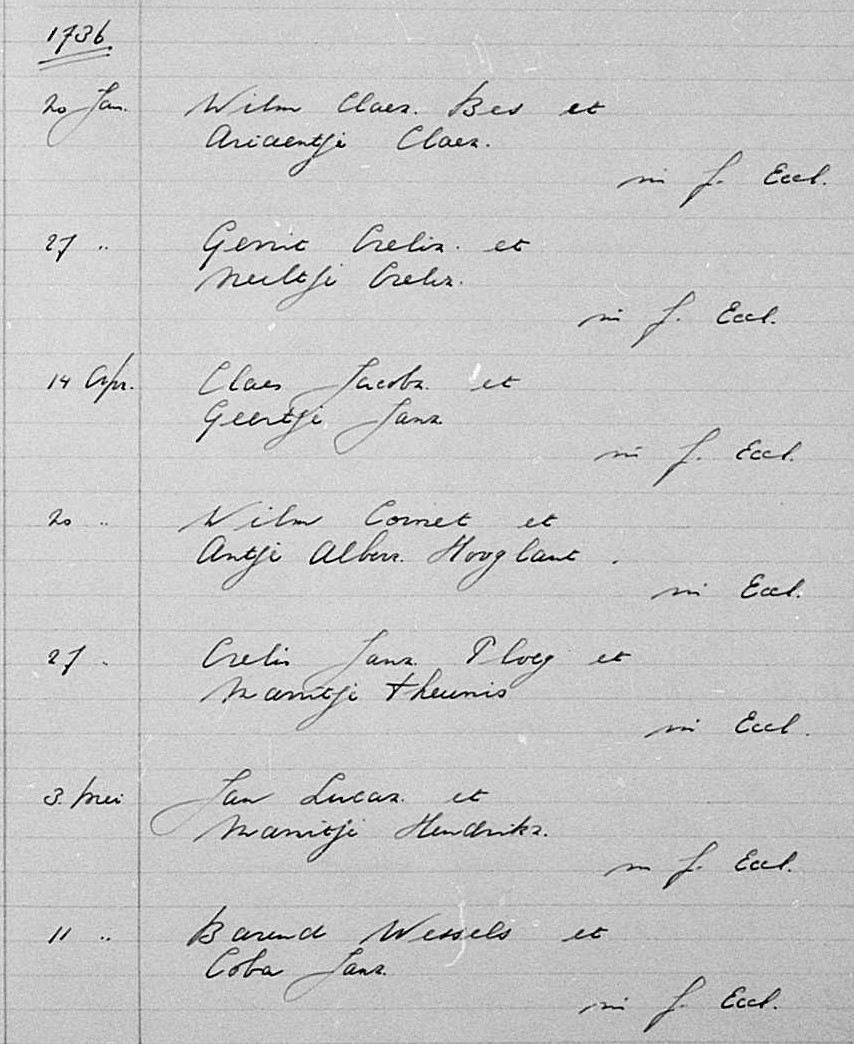 1736
20 Jan. Wilm Claez. Bes et
Ariaentje Claez.
in f. Eccl.
27 " Gerrit Crelisz. et
Neeltje Crelisz.
in f. Eccl.
14 Apr. Claes Jacobz. et
Geertje Janz.
in f. Eccl.
20 " Wilm Cornet et
Antje Albersz. Hooglant.
in Eccl.
27 " Crelis Janz. Ploeg et
Marritje Theunis
in Eccl.
3 Mei Jan Lucaz. et
Marritje Hendrikz.
in f. Eccl.
11 " Barend Wessels et
Coba Janz.
in f. Eccl.